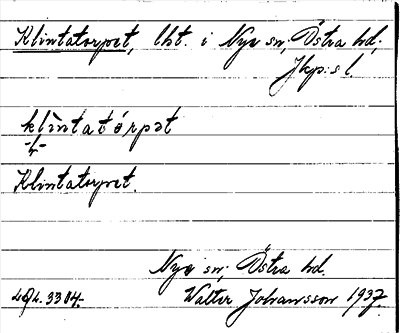 Klintatorpet, lht. i Nye sn; Östra hd;
Jkp:s l.
klìntatórpət
Klintatorpet.
Nye sn; Östra hd.
Walter Johansson 1937.